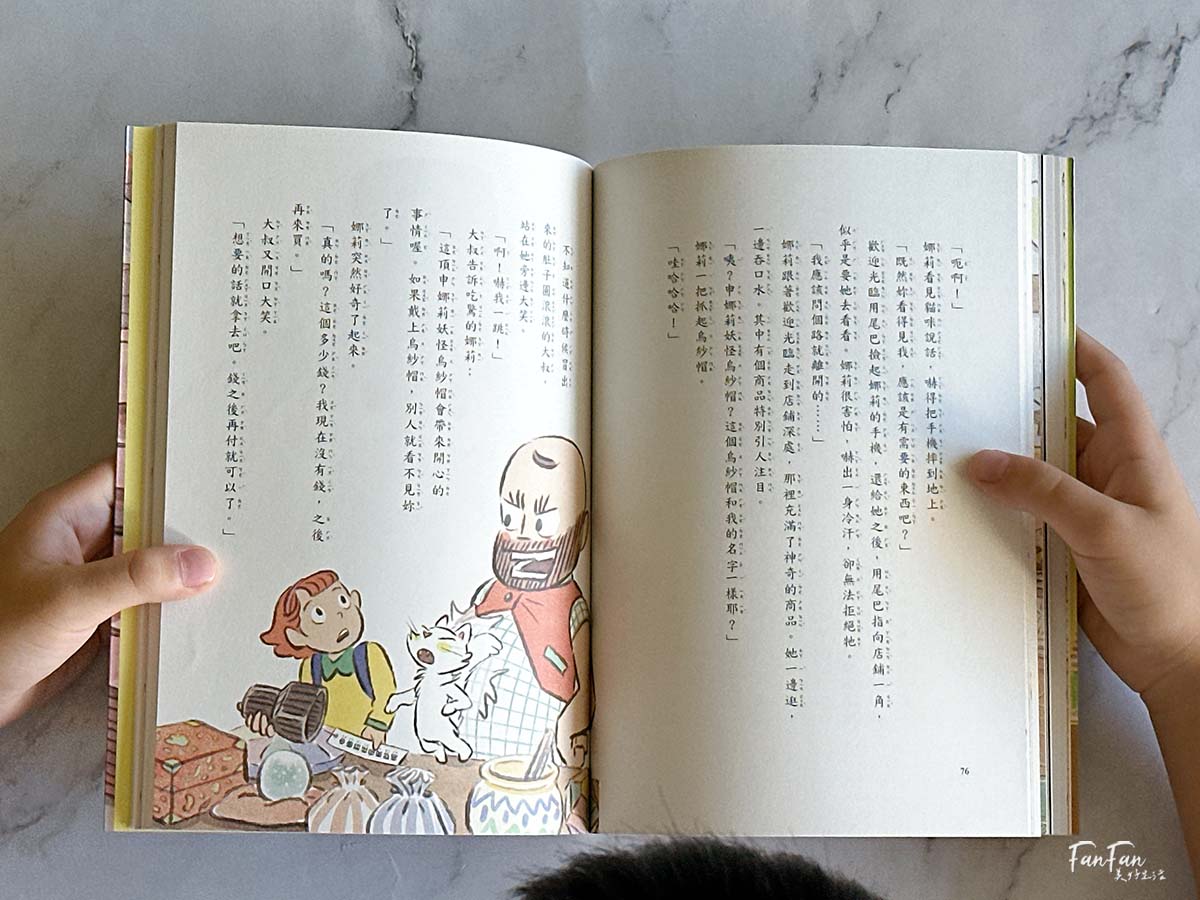 「呃啊！」
娜莉看見貓咪說話，嚇得把手機摔到地上。
「既然妳看得見我，應該是有需要的東西吧？」
歡迎光臨用尾巴撿起娜莉的手機，還給她之後，用尾巴指向店鋪一角，
似乎是要她去看看。娜莉很害怕，嚇出一身冷汗，卻無法拒絕牠。
「我應該問個路就離開的……」
娜莉跟著歡迎光臨走到店鋪深處，那裡充滿了神奇的商品。她一邊逛，
一邊吞口水。其中有個商品特別引人注目。
「咦？申娜莉妖怪烏紗帽？這個烏紗帽和我的名字一樣耶？」
娜莉一把抓起烏紗帽。
「哇哈哈哈！」
76
不知道什麼時候冒出
來的肚子圓滾滾的大叔，
站在她旁邊大笑。
「啊！嚇我一跳！」
大叔告訴吃驚的娜莉：
「這頂申娜莉妖怪烏紗帽會帶來開心的
事情喔。如果戴上烏紗帽，別人就看不見妳
了。」
娜莉突然好奇了起來。
「真的嗎？這個多少錢？我現在沒有錢，之後
再來買。」
大叔又開口大笑。
「想要的話就拿去吧。錢之後再付就可以了。」
FanFan
美好生活